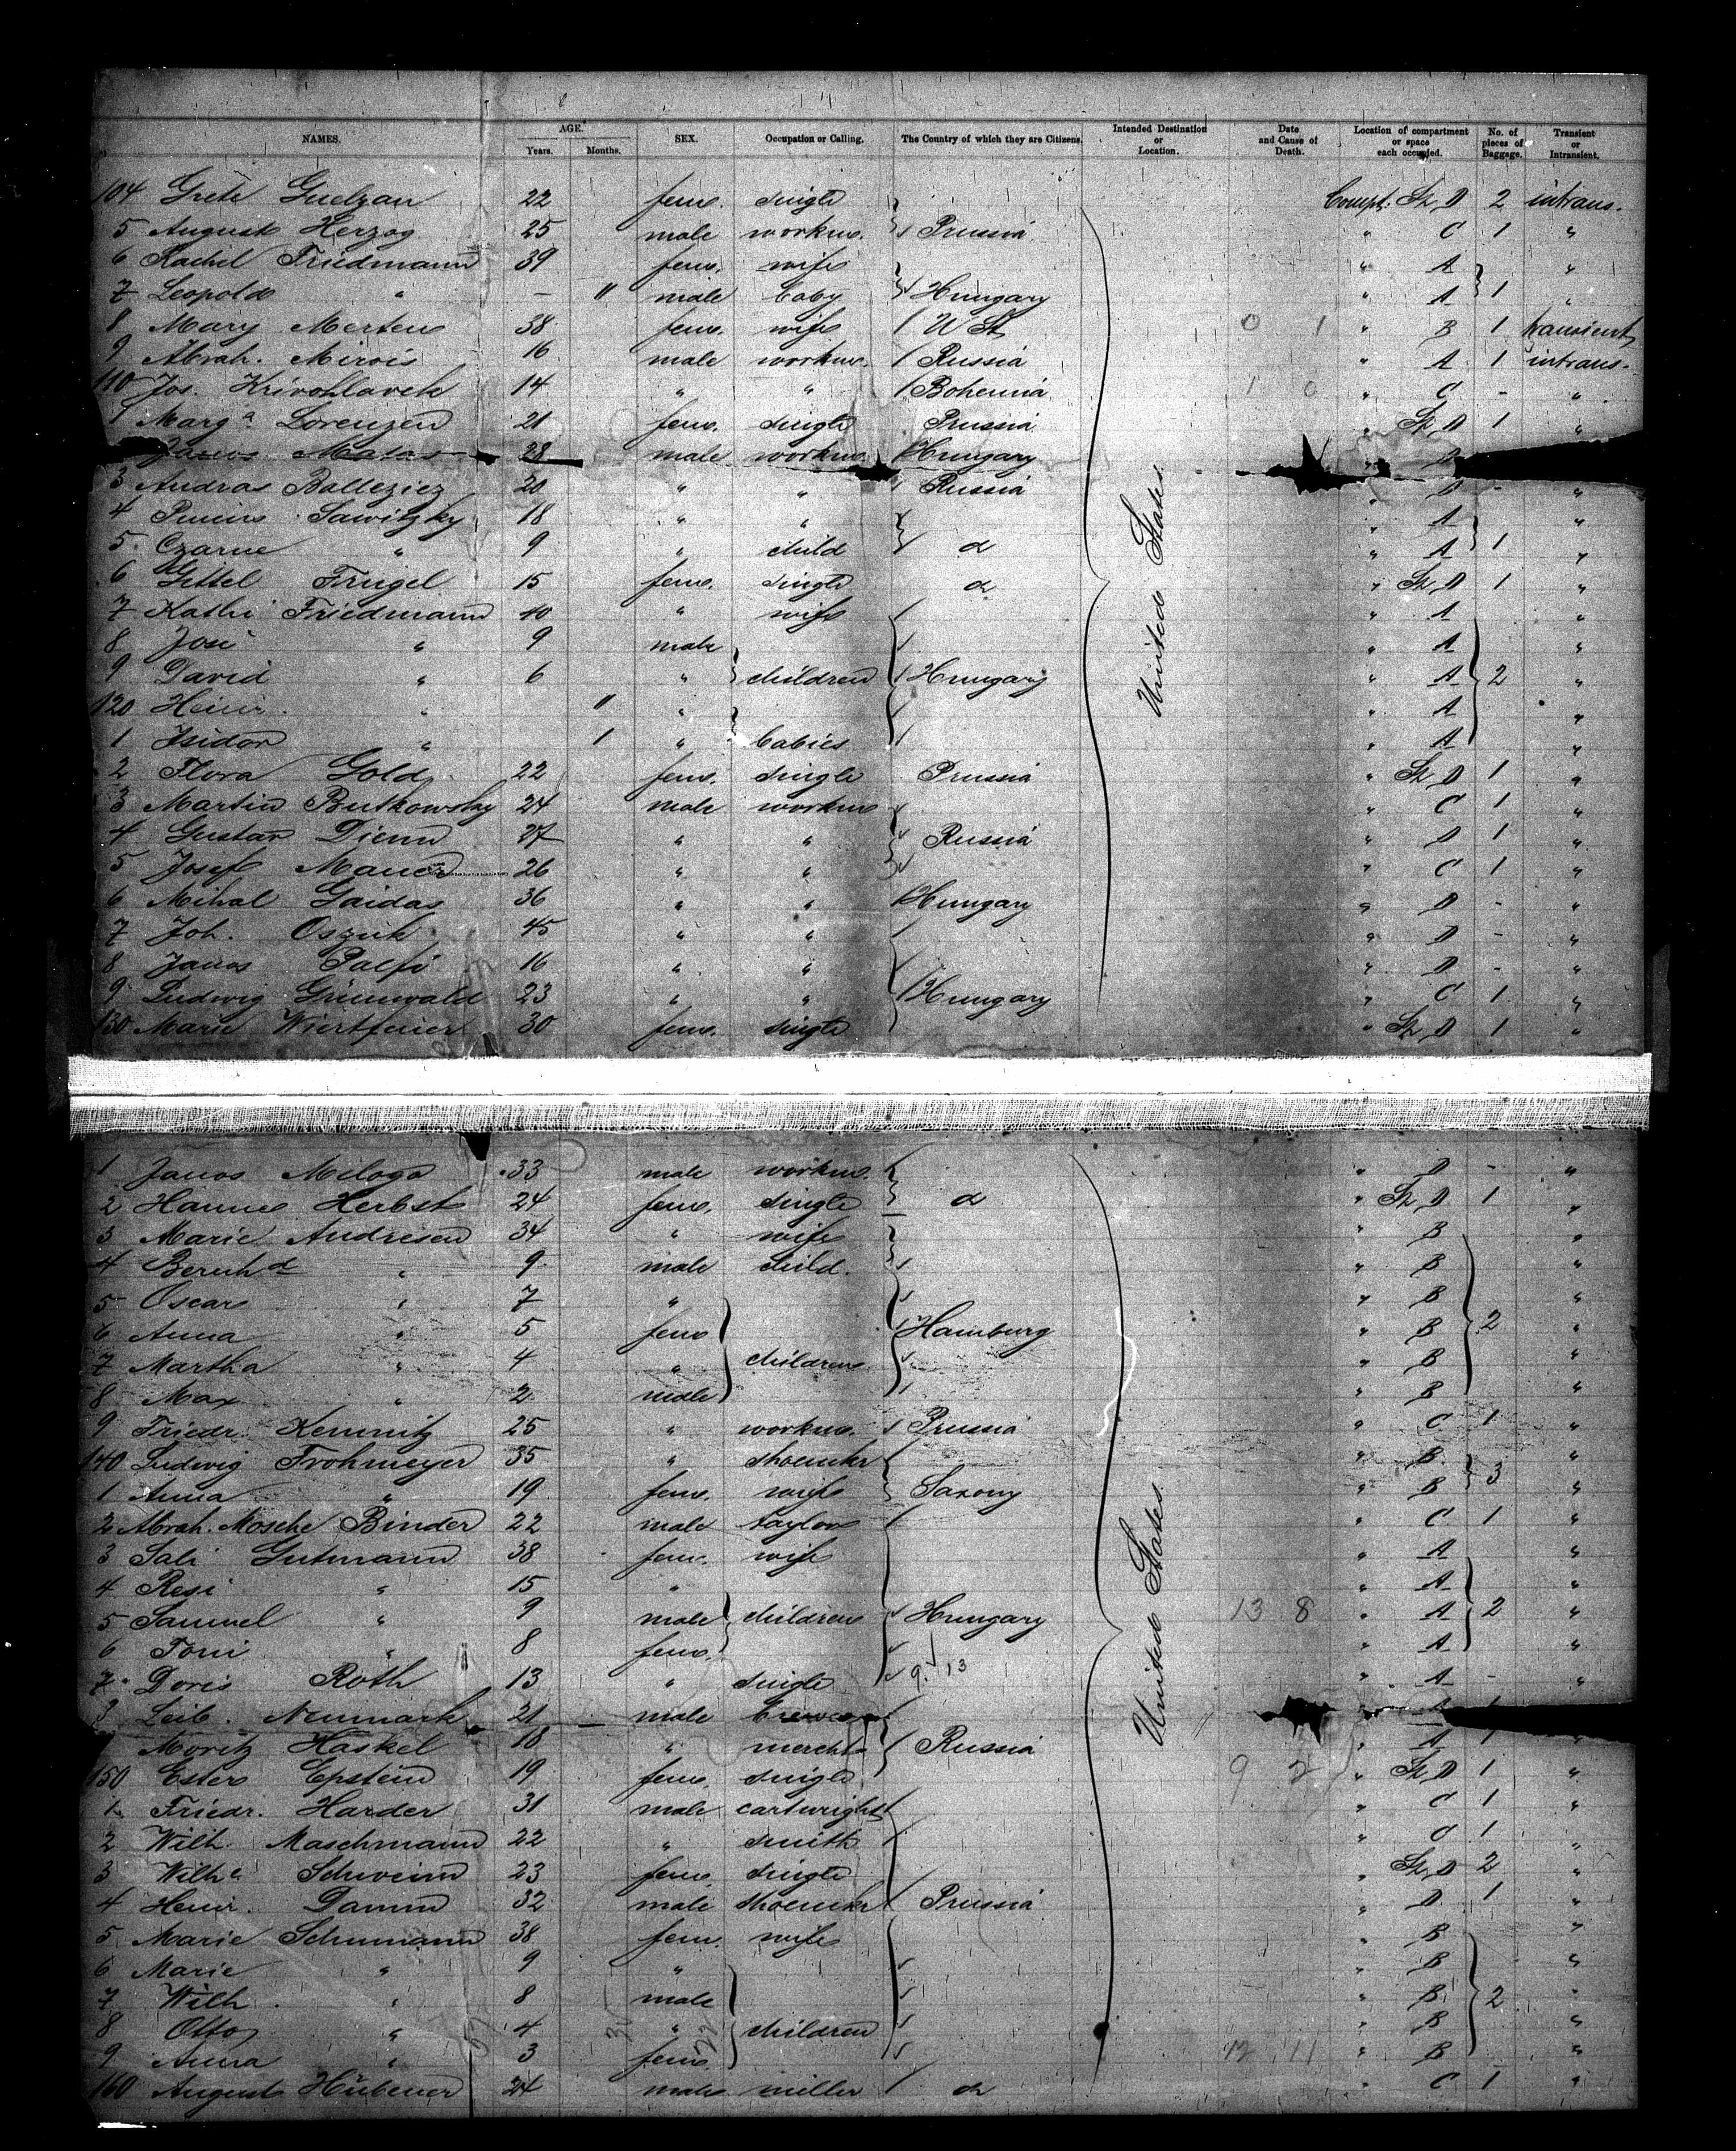 NAMES. AGE. Years. Months. SEX. Occupation or Calling. The Country of which they are Citizens. Intended Destination or Location. Date and Cause of Death. Location of compartment or space each occupied. No. of pieces of Baggage. Transient or Intransient.
104 Grete Guelzau 22 fem. single Compt. D 2 intrans.
5 August Herzog 25 male workm. Prussia " C 1 "
6 Rachel Friedmann 39 fem. wife " A "
7 Leopold " - 11 male baby Hungary " A 1 "
8 Mary Mertens 38 fem. wife U St. 0 1 " B 1 transient
9 Abrah. Mirvis 16 male workm. Russia " A 1 intrans.
110 Jos. Krivohlavek 14 " " Bohemia 1 0 " C - "
1 Marga Lorenzen 21 fem. single Prussia " D 1 "
Janos 28 male workm. Hungary
3 Andras 20 " " Russia " D - "
4 Sawitzky 18 " " " A "
5 " 9 " child d " A 1 "
6 Gittel 15 fem. single d " D 1 "
7 Kathi Friedmann 40 " wife " A "
8 Josi " 9 male " A "
9 David " 6 " children Hungary " A 2 "
120 Heinr. " 11 " " A "
1 Isidor " 1 " babies " A "
2 Flora Gold 22 fem. single Prussia " D 1 "
3 Martin Butkowsky 24 male workm " C 1 "
4 Gustav 27 " " Russia " D 1 "
5 Josef 26 " " " C 1 "
6 Mihal Gaidas 36 " " Hungary " D - "
7 Joh. 45 " " " D - "
8 Janos Palfi 16 " " " D - "
9 Ludwig Grünwald 23 " " Hungary " C 1 "
130 Marie 30 fem. single " D 1 "
United States
1 Janos Miloga 33 male workm. " D - "
2 Hanne Herbst 24 fem. single d " D 1 "
3 Marie Andresen 34 " wife " B "
4 Bernhd " 9 male child. " B "
5 Oscar " 7 " " B "
6 Anna " 5 fem Hamburg " B 2 "
7 Martha " 4 " children " B "
8 Max " 2 male " B "
9 Friedr. Kemnitz 25 " workm. Prussia " C 1 "
140 Ludwig Frohmeyer 35 " shoemkr " B "
1 Anna " 19 fem. wife Saxony " B 3 "
2 Abrah. Mosche Binder 22 male taylor " C 1 "
3 Sali Gutmann 38 fem. wife " A "
4 Resi " 15 " " A "
5 Samuel " 9 male children Hungary 13 8 " A 2 "
6 Toni " 8 fem. " A "
7 Doris Roth 13 " single 9 13 " A - "
Leib. Neumark 21 male
Moritz Haskel 18 " mercht Russia " A 1 "
150 Ester Epstein 19 fem. single 9 2 " D 1 "
1 Friedr. Harder 31 male cartwright " C 1 "
2 Wilh. Maschmann 22 " smith " C 1 "
3 Wilhe 23 fem. single " D 2 "
4 Heinr. Damm 32 male shoemkr Prussia " D 1 "
5 Marie Schumann 38 fem. wife " B "
6 Marie " 9 " " B "
7 Wilh. " 8 male " B 2 "
8 Otto " 4 " children " B "
9 Anna " 3 fem 12 11 " B "
160 August Hübener 24 male miller d " C 1 "
United States